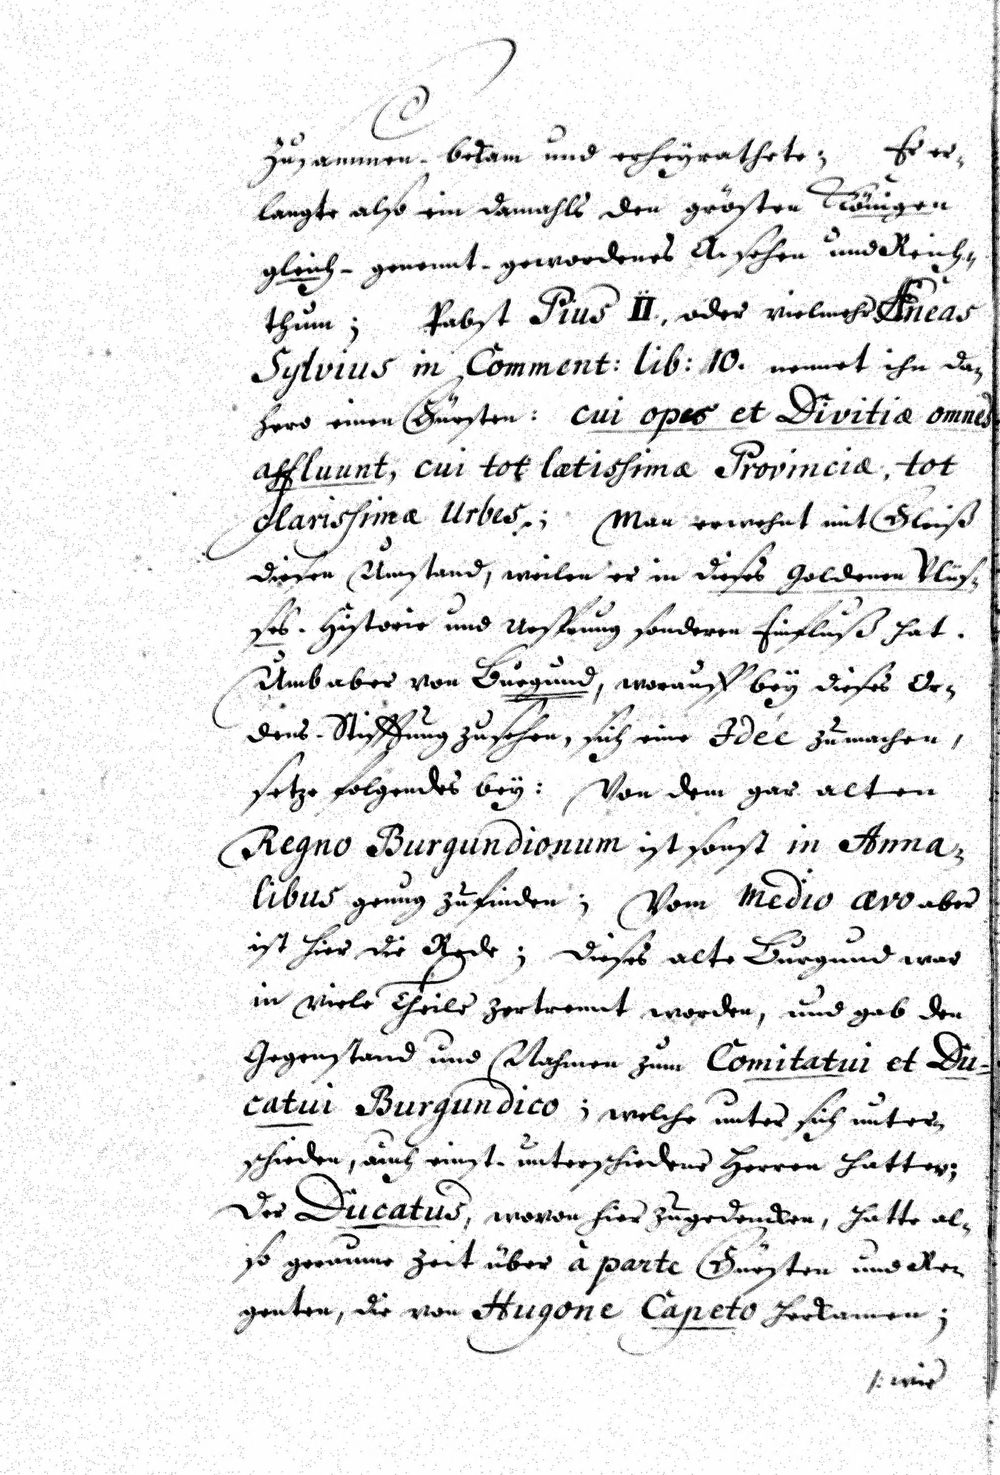 zusammen-bekam und erheyrathete; Er er-
langte also ein damahls den grösten Königen
gleich-genennt-gewordenes Ansehen und Reich-
thum; Pabst Pius II, oder vielmehr Æneas
Sylvius in Comment: lib: 10. nennet ihn da-
hero einen Fürsten: cui opes et Divitiæ omnes
affluunt, cui tot lætissimæ Provinciæ, tot
clarissimæ Urbes.; Man erwehnt mit Fleiß
diesen Umstand, weilen er in dieses Goldenen Vlüs-
ses-Historie und Ursprung sonderen Einfluß hat.
Umb aber von Burgund, worauff bey dieses Or-
dens-Stifftung zusehen, sich eine Idée zumachen,
setze folgendes bey: Von dem gar alten
Regno Burgundionum ist sonst in Anna-
libus genug zufinden; Vom medio ævo aber
ist hier die Rede; dieses alte Burgund war
in viele Theile zertrennt worden, und gab den
Gegenstand und Nahmen zum Comitatui et Du-
catui Burgundico; welche unter sich unter-
schieden, auch einst-unterschiedene Herren hatten;
Der Ducatus, wovon hier zugedencken, hatte al-
so geraume Zeit über à parte Fürsten und Re-
genten, die von Hugone Capeto herkamen;
/: wie